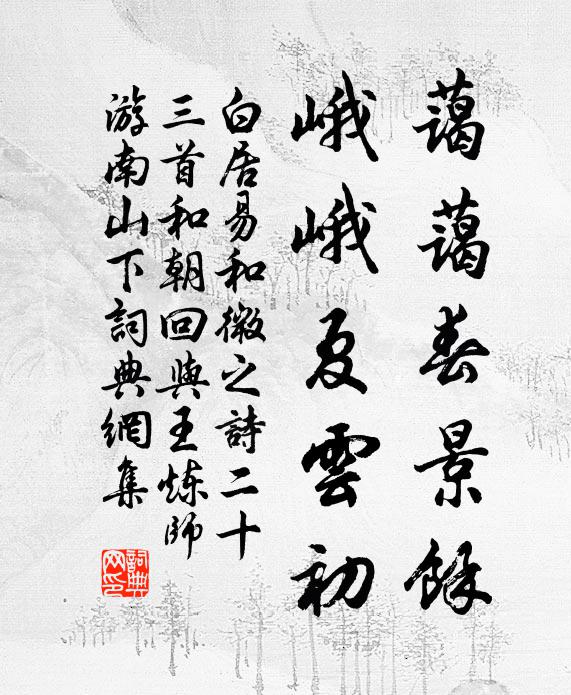 藹藹春景餘
峨峨夏雲初
白居易和微之詩二十
三首和朝回與王煉師
游南山下詞典網集
詞典网印